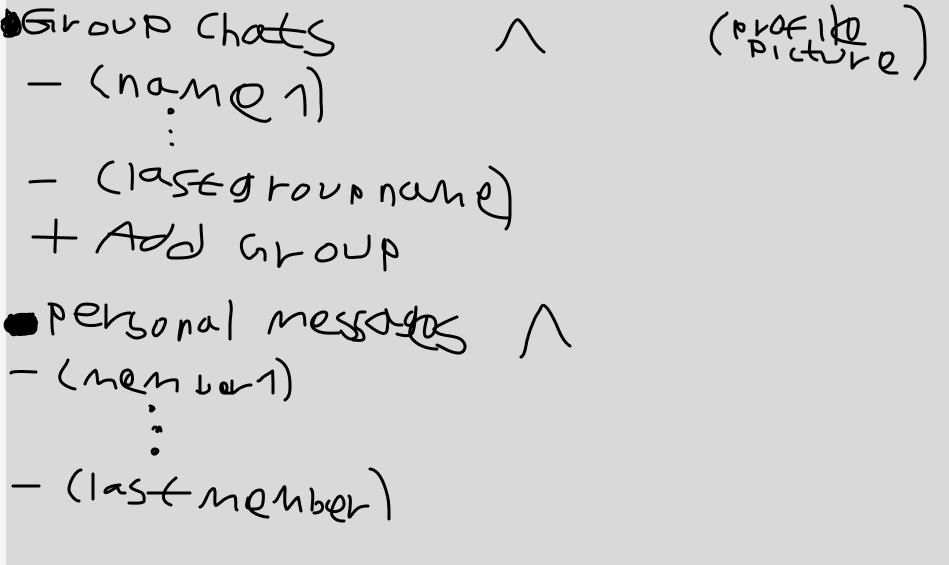 Group Chats ^ (profile picture)
- (name 1)
:
- (last group name)
+ Add Group
personal messages ^
- (member 1)
:
- (last member)